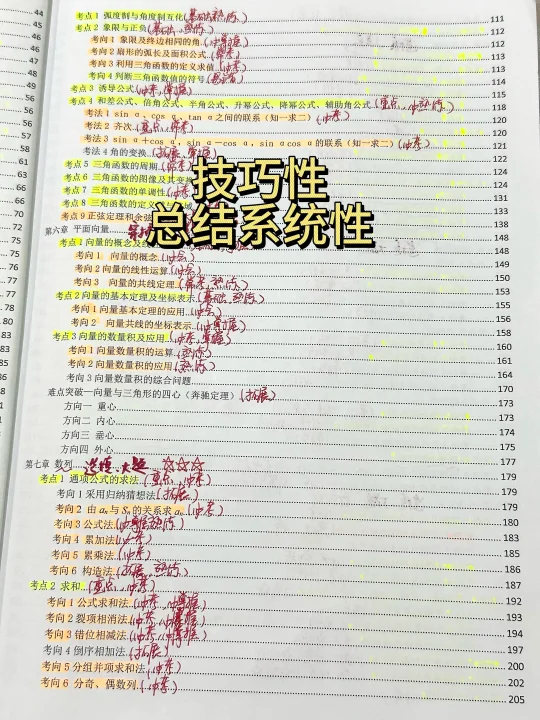 考点1 弧度制与角度制互化(基础、熟练) 111
考点2 象限与正负(基础、熟练) 112
考向1 象限及终边相同的角 112
考向2 扇形的弧长及面积公式 113
考向3 利用三角函数的定义求值(必考) 114
考向4 判断三角函数值的符号 115
考点3 诱导公式(必考、掌握) 115
考点4 和差公式、倍角公式、半角公式、升幂公式、降幂公式、辅助角公式(重点、必熟练) 118
考法1 sinα、cosα、tanα之间的联系(知一求二)(必考) 120
考法2 齐次(重点、常考) 120
考法3 sinα+cosα、sinα-cosα、sinαcosα的联系(知一求二)(必考) 121
考法4 角的变换(拓展、掌握) 121
考点5 三角函数的周期 124
考点6 三角函数的图像及其变换
考点7 三角函数的单调性
考点8 三角函数的定义
考点9 正弦定理和余弦
技巧性
总结系统性
第六章 平面向量 148
考点1 向量的概念及线
考向1 向量的概念(必会) 148
考向2 向量的线性运算(必会) 150
考向3 向量的共线定理(常考、熟练) 153
考点2 向量的基本定理及坐标表示(基础、熟练) 155
考向1 向量基本定理的应用(必会) 156
考向2 向量共线的坐标表示(必掌握) 158
考点3 向量的数量积及应用(必考、掌握) 160
考向1 向量数量积的运算(熟练) 161
考向2 向量数量积的应用(熟练) 164
考向3 向量数量积的综合问题 170
难点突破一向量与三角形的四心(奔驰定理)(拓展) 173
方向一 重心 173
方向二 内心 174
方向三 垂心 174
方向四 外心 175
第七章 数列 选填、大题 ☆☆☆ 177
考点1 通项公式的求法(重点、必考) 179
考向1 采用归纳猜想法(拓展) 179
考向2 由aₙ与Sₙ的关系求aₙ(必考) 179
考向3 公式法(必掌握、熟练) 180
考向4 累加法(必考) 183
考向5 累乘法(必考) 185
考向6 构造法(拓展、熟练) 186
考点2 求和(重点、必考) 187
考向1 公式求和法(必考、必掌握) 192
考向2 裂项相消法(必考、必掌握) 193
考向3 错位相减法(必考、必掌握) 194
考向4 倒序相加法(拓展) 197
考向5 分组并项求和法(必考) 200
考向6 分奇、偶数列(必考) 202
205